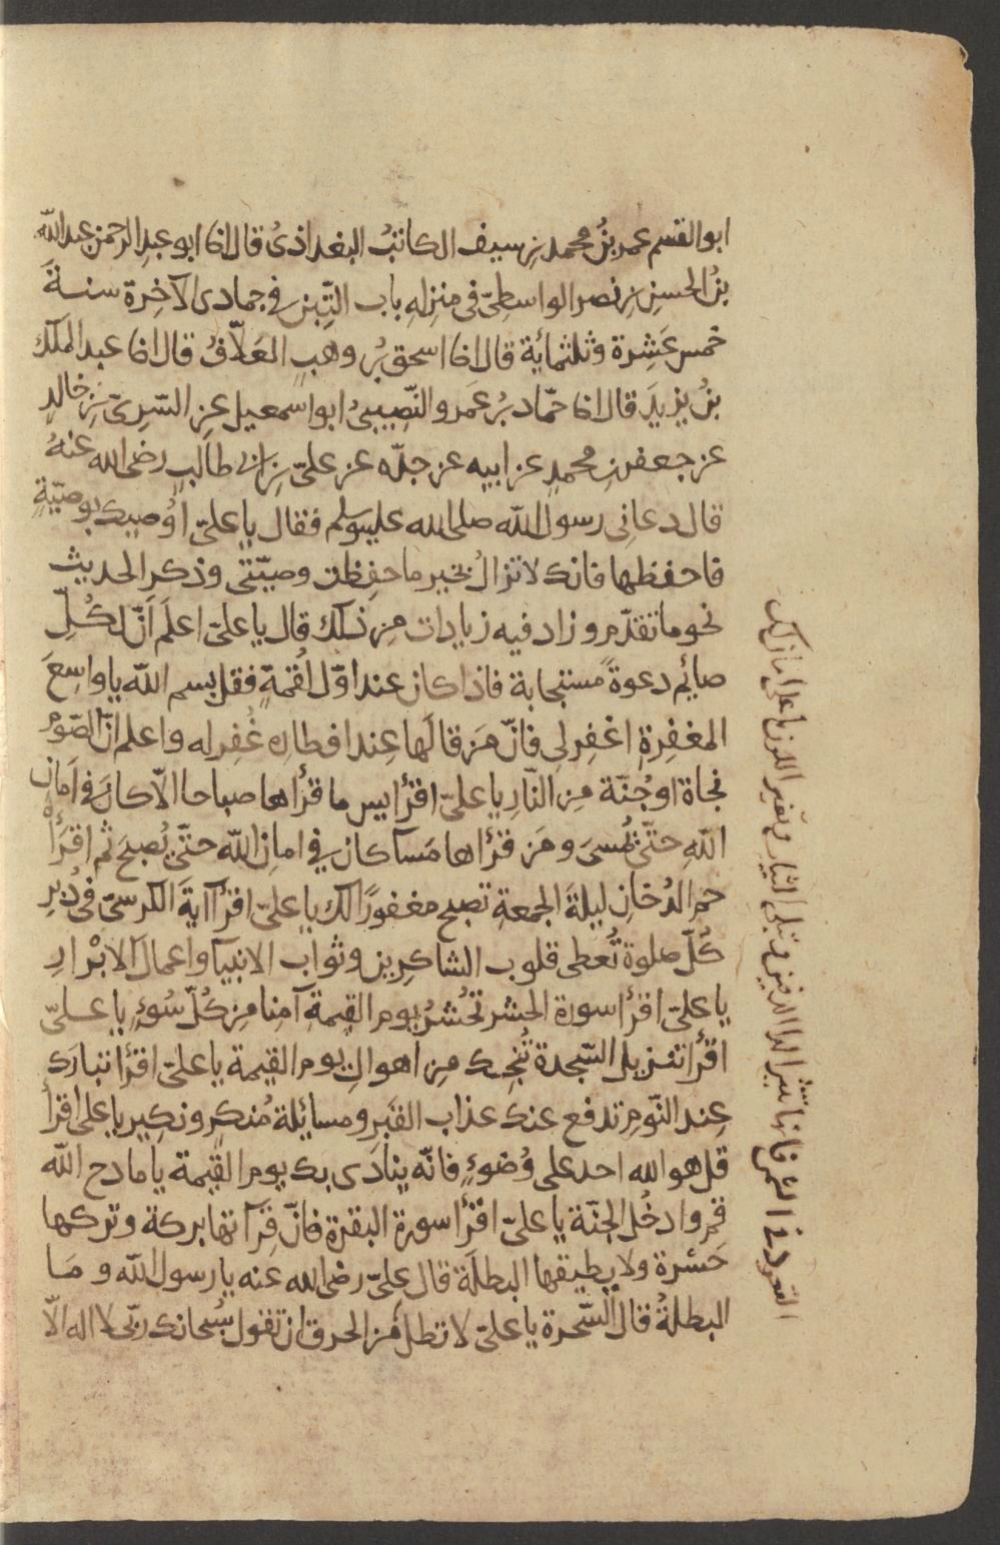 ابو القسم عمر بنُ محمد بنِ سيف الكاتبُ البغداذىُ قال انا ابو عبدِ الرحمن عبد الله
بنُ الحسنِ بنِ نصر الواسطىّ فى منزله باب التِّبن فى جمادى الآخِرة سنةَ
خمس عَشِرة وثلثمائة قال انا اسحق بنُ وهبٍ العَلاّفُ قال انا عبد الملك
بنُ يزيدَ قال انا حمّاد بنُ عَمرو النَّصِيبىُ ابو اسمعيل عن السّرِىّ بنِ خالدٍ
عن جعفر بنِ محمدٍ عن ابيه عن جدّه عن علىّ بنِ ابى طالبٍ رضى الله عنهُ
قال دعانى رسول الله صلى الله عليه وسلم فقال يا علىّ اُوصيك بوصيّةٍ
فاحفظها فانك لا تزالُ بخير ما حفِظت وصيّتى وذكر الحديث
نحو ما تقدّم وزاد فيه زيادات مِن ذلك قال يا علىّ اعلَم اَنّ لكُلِّ
صائِم دعوةً مستجابة فاذا كان عند اوّل لُقمةٍ فقل بسم الله يا واسِعَ
المغفِرةِ اغفِر لى فانّ مَن قالَها عِند افطارِه غُفِر له واعلم انّ الصّومَ
نجاة او جُنّة مِن النّارِ يا علىّ اقرأ يس ما قرأها صباحا الاّ كانَ فى اَمانِ
اللهِ حتّى يُمسىَ ومَن قرأها مَسآ كان فى امانِ الله حتّى يُصبحَ ثم اقرَأْ
حم الدُخانِ ليلةَ الجمعةِ تصبح مغفورًا لك يا علىّ اقرأ آيةَ الكرسىّ فى دُبُرِ
كُلّ صلوة تُعطى قلوب الشاكِرين وثواب الانبيآ واعمالَ الابْرارِ
يا علىّ اقرأ سورة الحشر تحُشرُ يوم القيمةِ آمِنا مِن كُلّ سُوءٍ يا علىّ
اقرأ تنزيل السّجدة تُنجِك مِن اَهوالِ يوم القيمة يا علىّ اقرأ تبارَك
عِند النّومِ تدفع عنك عذاب القبَر ومسائلة مُنكرٍ ونكِير يا على اقرأ
قل هو الله احد على وُضوءٍ فانّه ينادَى بك يوم القيمة يا مادح الله
قم وادخُل الجنّة يا علىّ اقرأ سورة البقرة فانّ قِرآتها بركة وتركها
حَسْرة ولا يطيقها البطلَة قال علىّ رضى الله عنه يا رسول الله ومَا
البطلةُ قال السّحرة يا علىّ لا تطل مِن الحرق ان تقول سُبحانك ربّى لا اله الاّ
القعود فى الشمس فانها تثير الداء الدفين وتبلى الثياب وتغير اللون يا على امان لك